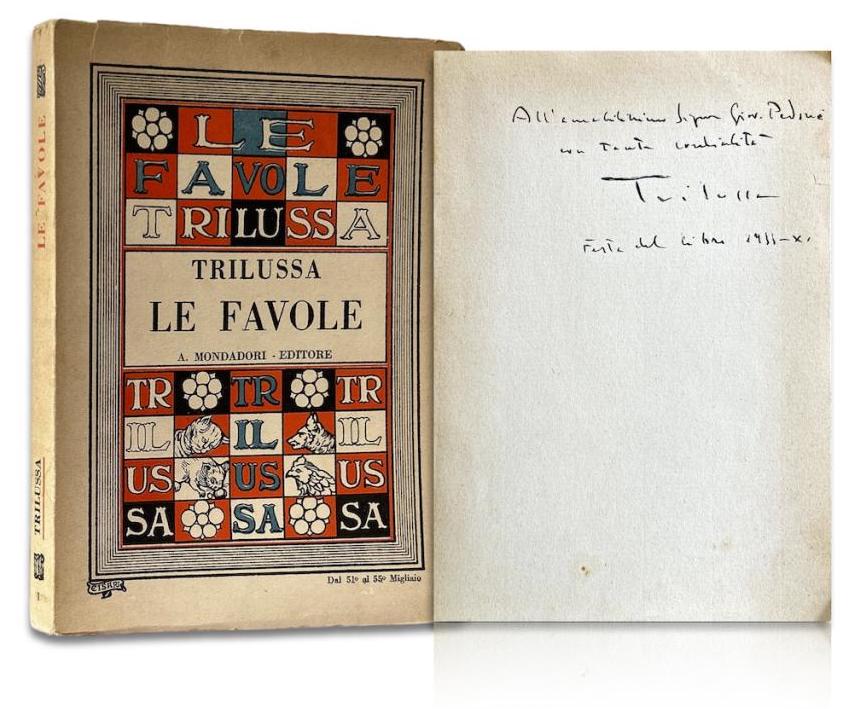 LE FAVOLE
TRILUSSA
LE
FAVOLE
TRILUSSA
TRILUSSA
LE FAVOLE
A. MONDADORI - EDITORE
TR TR TR
IL IL IL
US US US
SA SA SA
CISARI
Dal 51º al 55º Migliaio
All'amabilissimo Signor Giov.
con tanta cordialità
Trilussa
Festa del Libro 1933-XI.